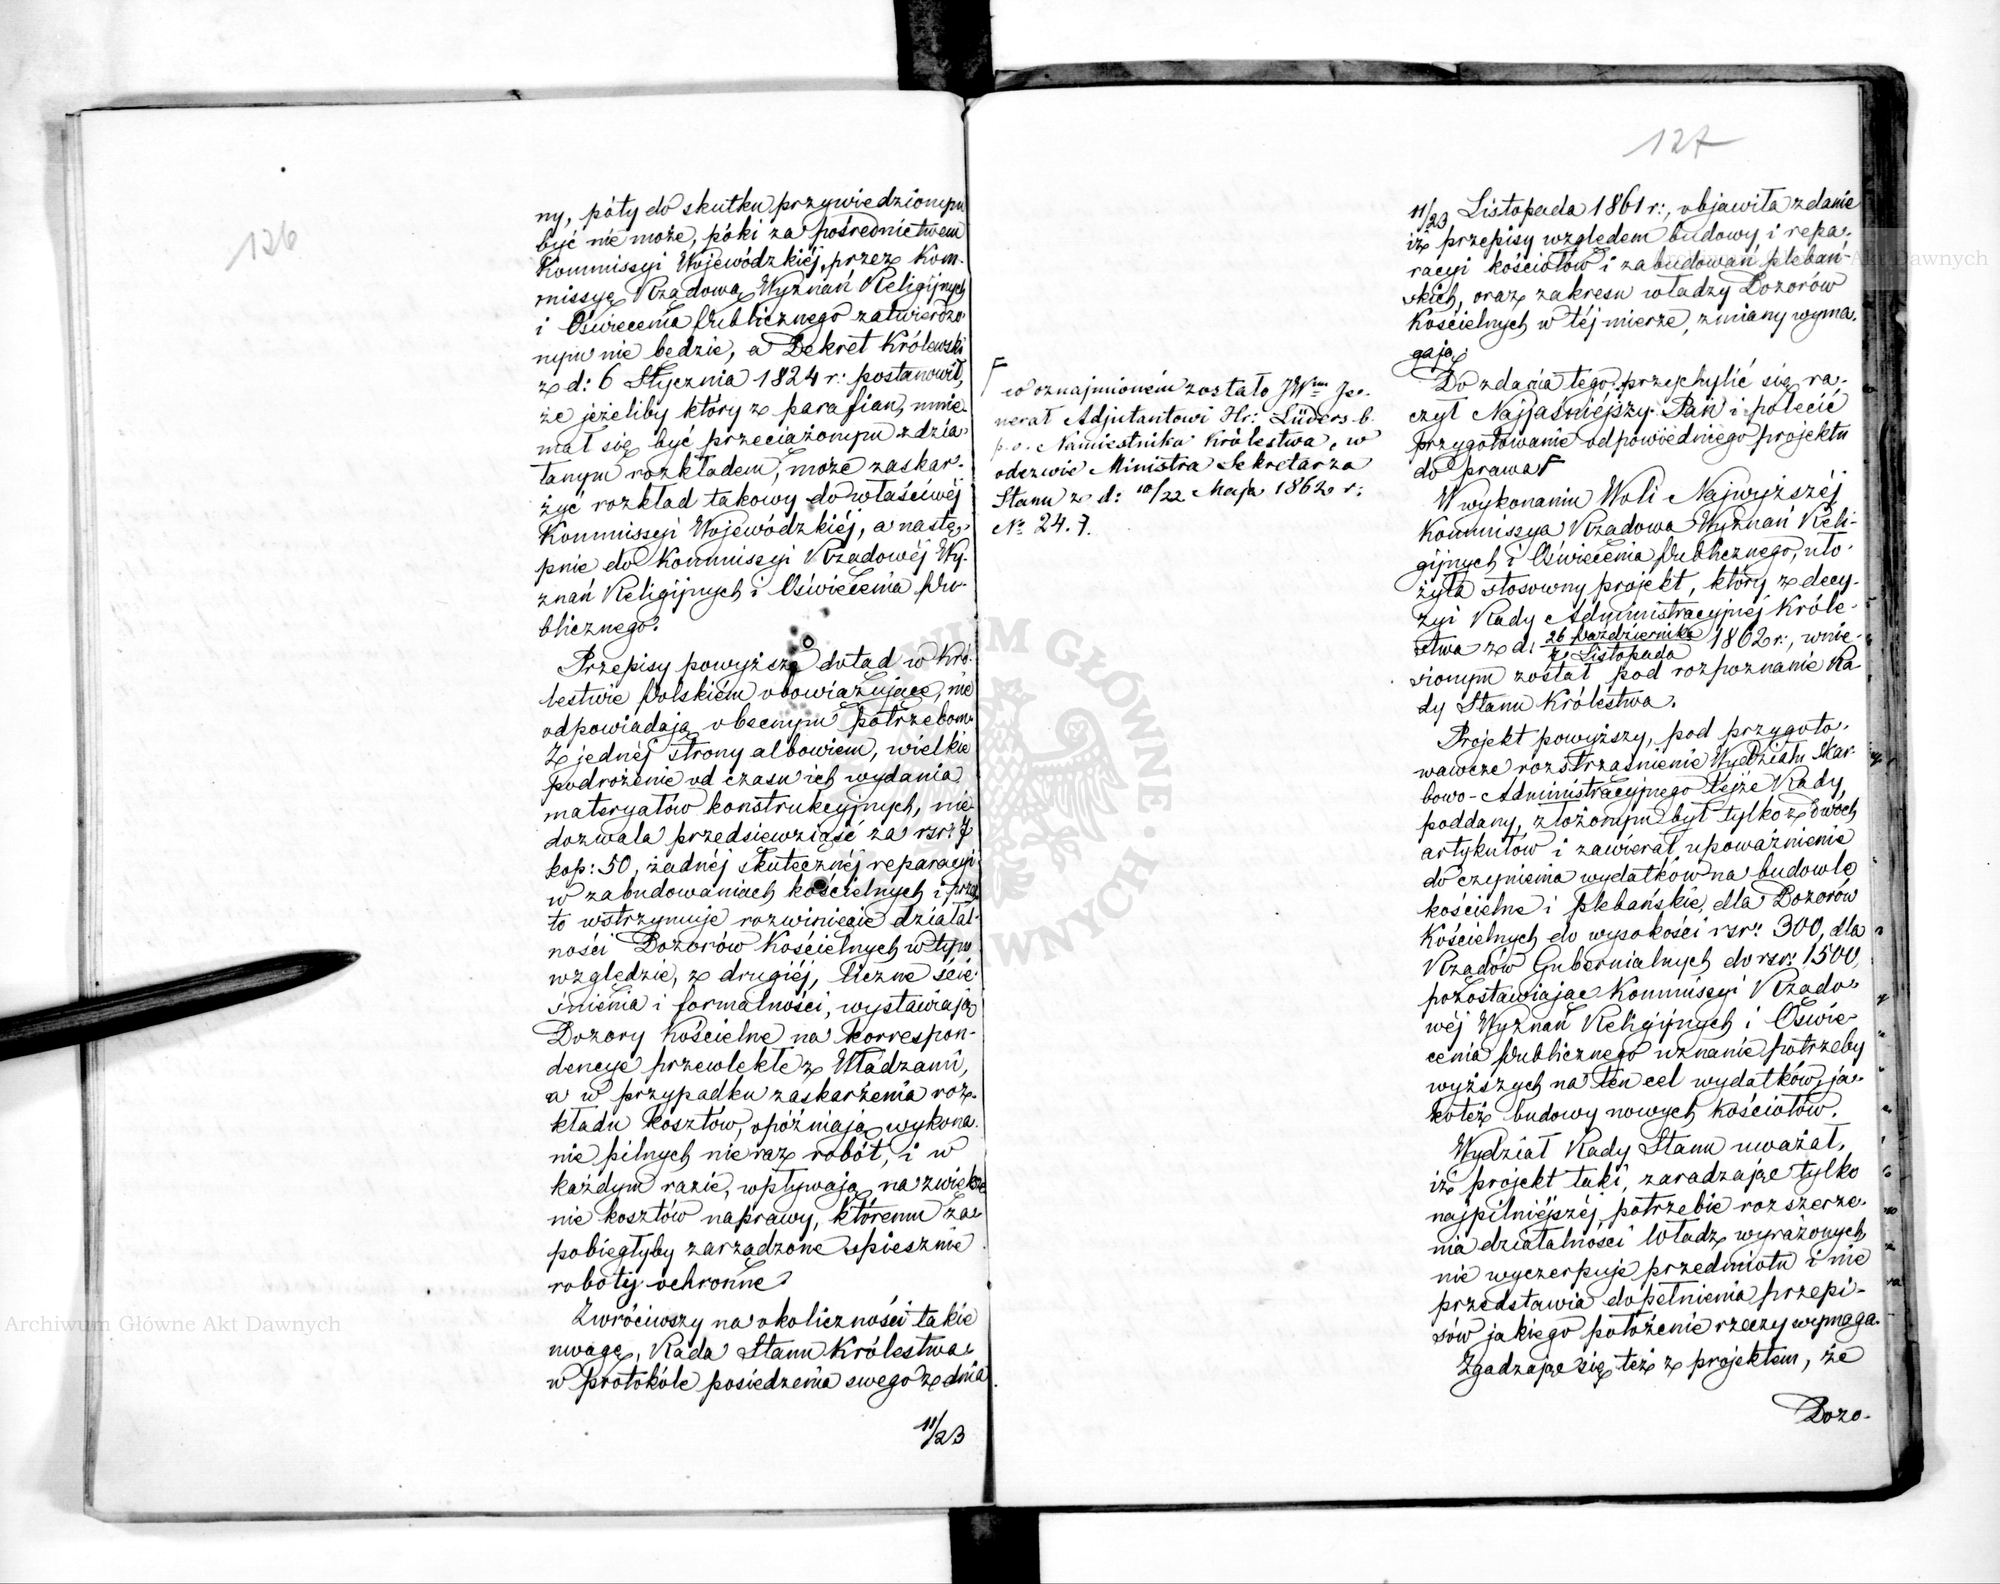 126
ny, póty do skutku przywiedzionym
być nie może, póki za pośrednictwem
Kommissyi Wojewódzkiéj, przez Kom-
missyę Rządową Wyznań Religijnych
i Oświecenia Publicznego zatwierdzo
nym nie będzie, a Dekret Królewski
z d: 6 Stycznia 1824 r: postanowił,
że jeżeliby który z parafian, mnie-
mał się być przeciążonym zdzia-
łanym rozkładem, może zaskar-
żyć rozkład takowy do właściwéj
Kommissyi Wojewódzkiéj, a nastę-
pnie do Kommissyi Rządowéj Wy-
znań Religijnych i Oświecenia Pu-
blicznego.
Przepisy powyższe dotąd w Kró-
lestwie Polskiém obowiązujące, nie
odpowiadają obecnym potrzebom.
Z jednéj strony albowiem, wielkie
podrożenie od czasu ich wydania
materyałów konstrukcyjnych, nie
dozwala przedsięwziąść za rsr: 7
kop: 50, żadnéj skutecznéj reparacyi
w zabudowaniach kościelnych i prze
to wstrzymuje rozwinięcie działal-
ności Dozorów Kościelnych w tym
względzie, z drugiéj, liczne ście-
śnienia i formalności, wystawiają
Dozory Kościelne na korrespon-
dencye przewlekłe z Władzami,
a w przypadku zaskarżenia roz-
kładu kosztów, opóźniają wykona-
nie pilnych nieraz robót, i w
każdym razie, wpływają na zwiększe
nie kosztów naprawy, któremu za-
pobiegłyby zarządzone spiesznie
roboty ochronne.
Zwróciwszy na okoliczności takie
uwagę, Rada Stanu Królestwa
w protokóle posiedzenia swego z dnia
11/23
127
co oznajmioném zostało JWmu Je-
nerał Adjutantowi Hr: Lüders b.
p.o. Namiestnika Królestwa, w
odezwie Ministra Sekretarza
Stanu z d: 10/22 Maja 1862 r:
No 24.7.
11/23 Listopada 1861 r:, objawiła zdanie
iż przepisy względem budowy i repa-
racyi kościołów i zabudowań plebań-
skich, oraz zakresu władzy Dozorów
Kościelnych w téj mierze, zmiany wyma-
gają.
Do zdania tego przychylić się ra-
czył Najjaśniejszy Pan i polecić
przygotowanie odpowiedniego projektu
do prawa
W wykonaniu Woli Najwyższéj
Kommissya Rządowa Wyznań Reli-
gijnych i Oświecenia Publicznego, uło-
żyła stosowny projekt, który z decy-
zyi Rady Administracyjnéj Króle-
stwa z d. 26 Października/7 Listopada 1862 r:, wnie-
sionym został pod rozpoznanie Ra
dy Stanu Królestwa.
Projekt powyższy, pod przygoto-
wawcze rozstrząśnienie Wydziału Skar-
bowo-Administracyjnego tejże Rady
poddany, złożonym był tylko z dwóch
artykułów i zawierał upoważnienie
do czynienia wydatków na budowle
kościelne i plebańskie, dla Dozorów
Kościelnych do wysokości rsr: 300, dla
Rządów Gubernialnych do rsr: 1500,
pozostawiając Kommissyi Rządo-
wéj Wyznań Religijnych i Oświe-
cenia Publicznego uznanie potrzeby
wyższych na ten cel wydatków, ja-
koteż budowy nowych kościołów.
Wydział Rady Stanu uważał,
iż projekt taki, zaradzając tylko
najpilniejszéj potrzebie rozszerze-
nia działalności Władz wyrażonych
nie wyczerpuje przedmiotu i nie
przedstawia dopełnienia przepi-
sów jakiego położenie rzeczy wymaga.
Zgadzając się też z projektem, że
Dozo-
Archiwum Główne Akt Dawnych